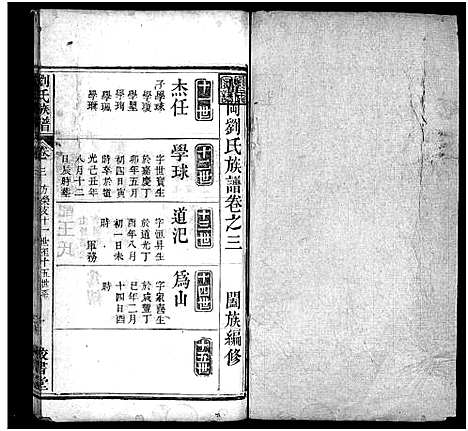 岡劉氏族譜卷之三
闔族編修
十一世
杰任
子學球
學瓊
學璧
學珣
學珮
學璡
十二世
學球
字世寶生
於嘉慶丁
卯年五月
初四日寅
時卒於道
光己丑年
八月十二
日辰時葬
十三世
道汜
字恒昇生
於道光丁
酉年八月
初一日未
時
軍務
十四世
為山
字家喬生
於咸豐丁
巳年二月
十四日酉
時
十五世
劉氏族譜
卷三
房榮枝十一世至十五世系
一
校書堂
配王氏